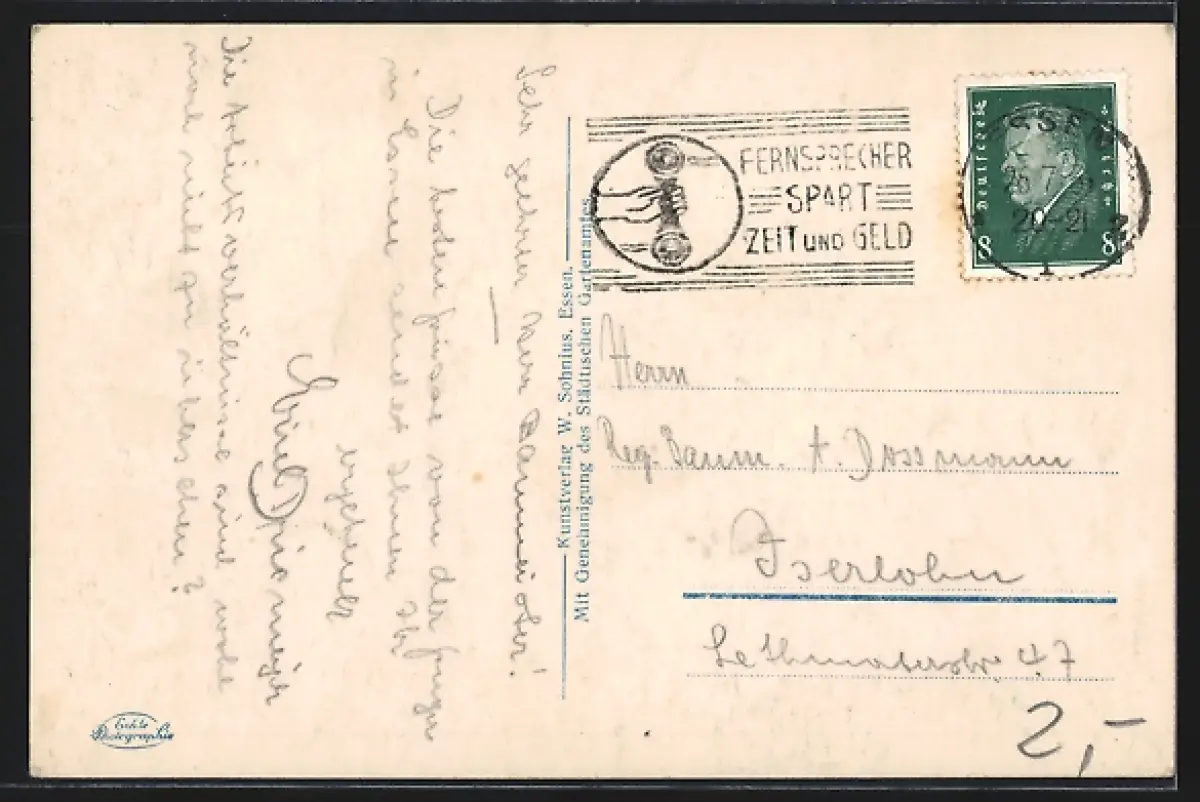 Sehr geehrter Herr Baumeister!
Die besten Grüsse von der
in Essen sendet Ihnen Ihr
ergebenst
Emil
Die Arbeitsverhältnisse sind wohl
noch nicht zu übersehen?
Echte
Photographie
Kunstverlag W. Sohnius. Essen.
Mit Genehmigung des Städtischen Gartenamtes.
FERNSPRECHER
SPART
ZEIT UND GELD
Deutsches Reich
8 8
ESSEN
20-21
1
Herrn
Reg. Baum. A. Dossmann
Iserlohn
Lethmaterstr 47
2,-